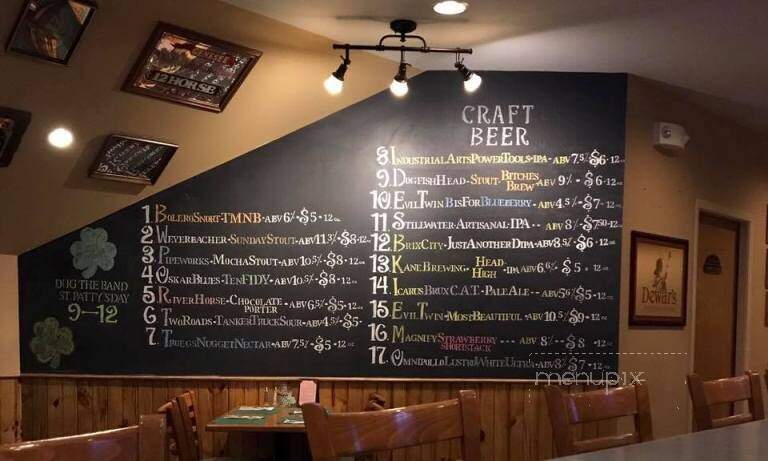 CRAFT
BEER
1. BOLERO SNORT - TMNB - ABV 6% - $5 - 12oz
2. WEYERBACHER - SUNDAY STOUT - ABV 11.3% - $8 - 12oz
3. PIPEWORKS - MOCHA STOUT - ABV 10.5% - $8 - 12oz
4. OSKAR BLUES - TEN FIDY - ABV 10.5% - $8 - 12oz
5. RIVER HORSE - CHOCOLATE PORTER - ABV 6.5% - $5 - 12oz
6. TWO ROADS - TANKER TRUCK SOUR - ABV 4.5% - $5 - 12oz
7. TROEGS NUGGET NECTAR - ABV 7.5% - $5 - 12oz
8. INDUSTRIAL ARTS POWER TOOLS - IPA - ABV 7.5% $6 - 12oz
9. DOGFISH HEAD - STOUT - BITCHES BREW - ABV 9% - $6 - 12oz
10. EVIL TWIN BIS FOR BLUEBERRY - ABV 4.5% - $7 - 12oz
11. STILLWATER - ARTISANAL - IPA - ABV 8% - $7.50 - 12oz
12. BRIX CITY - JUST ANOTHER DIPA - ABV 8.5% - $6 - 12oz
13. KANE BREWING - HEAD HIGH - IPA 6.6% $5 - 12oz
14. ICARUS BRUX C.A.T. - PALE ALE - ABV 5.6% $5 - 12oz
15. EVIL TWIN - MOST BEAUTIFUL - ABV 10.5% $9 - 12oz
16. MAGNIFY STRAWBERRY SHORTSTACK - ABV 8% - $8 - 12oz
17. OMNIPOLLO LUSTRO WHITE ABV 8% $7 - 12oz
DUG THE BAND
ST. PATTY'S DAY
9-12
12 HORSE
Dewar's
menupix